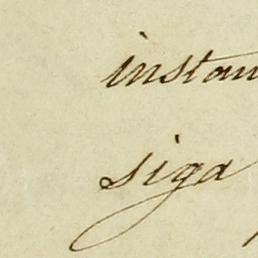 instan
siga